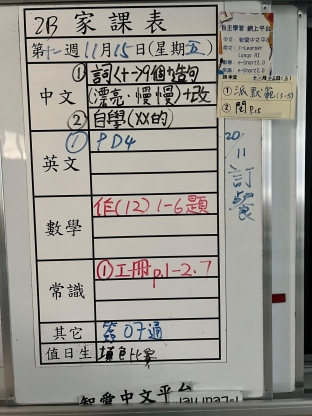 2B 家課表
第十一週 11月15日(星期五)
中文
① 詞(十一)9個+造句
(漂亮、慢慢)+改
② 自學(XX的)
英文
① PD4
數學
作(12) 1-6題
常識
① 工冊 p.1-2.7
其它
簽 07通
值日生
填色比賽
智愛中文平台
自主學習 網上平台
中文: 智愛中文平台
英文: i-Learner
e-Smart2.0
e-Smart2.0
①派默範(3-5)
② 閱 P.15
20/11 訂餐